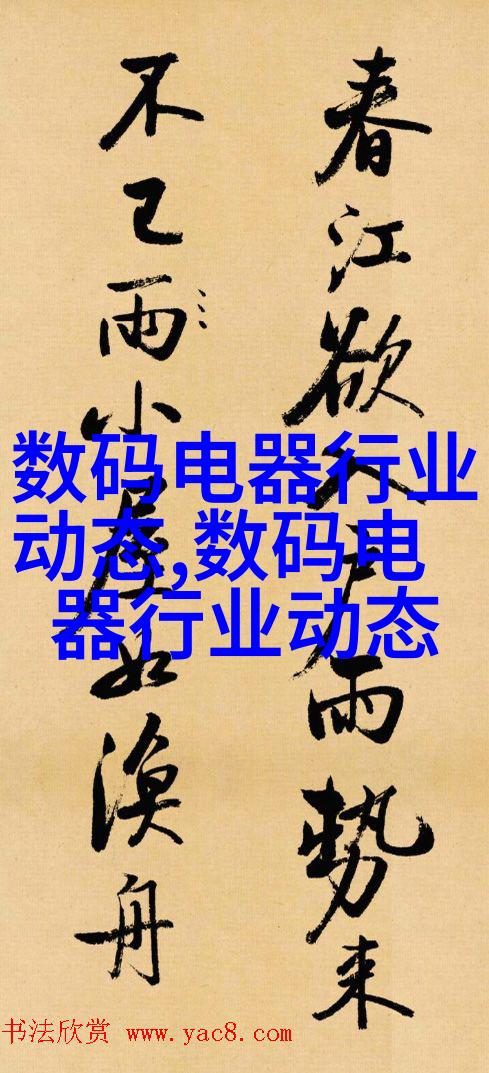 春江欲入户雨勢来
不已雨小屋如漁舟
数码电器行业
动态,数码电
器行业动态
书法欣赏 www.yac8.com